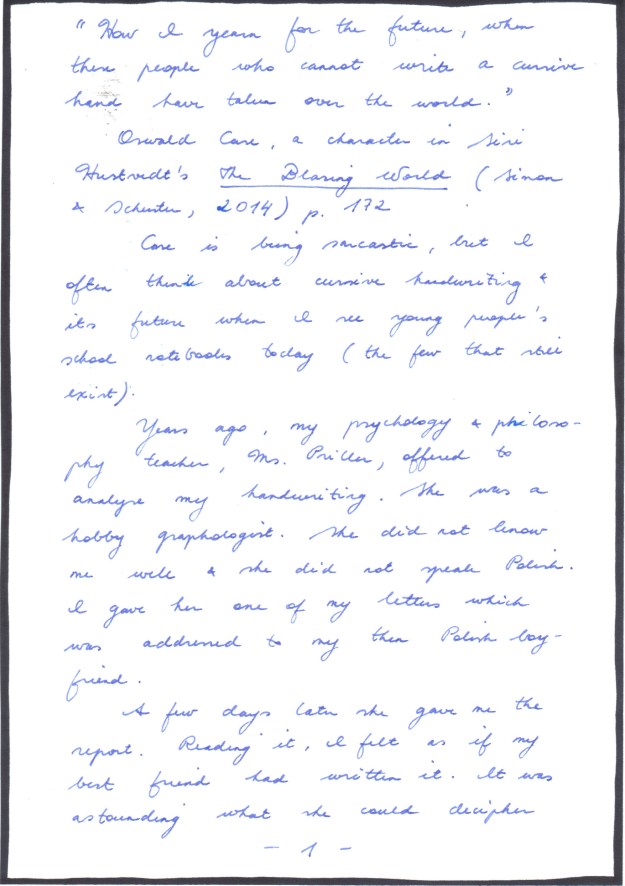 "How I yearn for the future, when
these people who cannot write a cursive
hand have taken over the world."
Oswald Case, a character in Siri
Hustvedt's The Blazing World (Simon
& Schuster, 2014) p. 172
Case is being sarcastic, but I
often think about cursive handwriting &
its future when I see young people's
school notebooks today (the few that still
exist).
Years ago, my psychology & philoso-
phy teacher, Ms. Priller, offered to
analyse my handwriting. She was a
hobby graphologist. She did not know
me well & she did not speak Polish.
I gave her one of my letters which
was addressed to my then Polish boy-
friend.
A few days later she gave me the
report. Reading it, I felt as if my
best friend had written it. It was
astounding what she could decipher
- 1 -